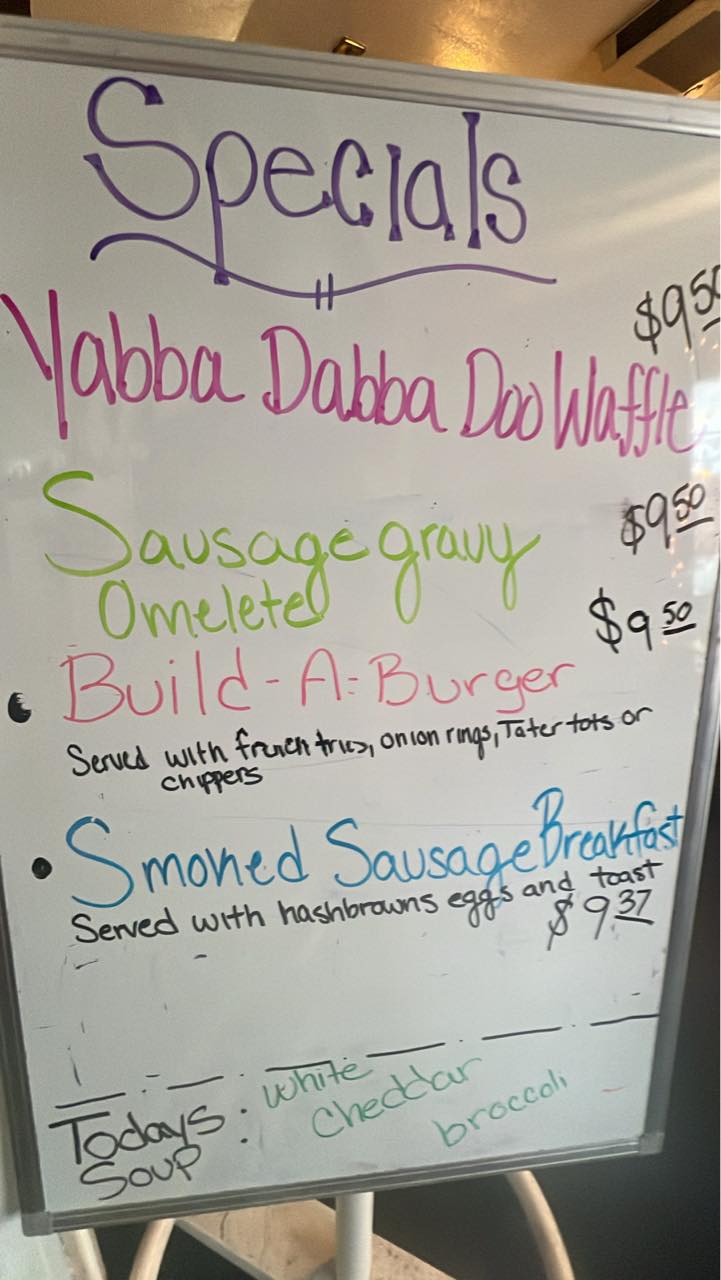 Specials
$9.50
Yabba Dabba Doo Waffle
Sausage gravy $9.50
Omelete
$9.50
• Build-A-Burger
Served with french fries, onion rings, Tater tots or
chippers
• Smoked Sausage Breakfast
Served with hashbrowns eggs and toast
$9.37
Todays : White
Soup Cheddar
broccoli